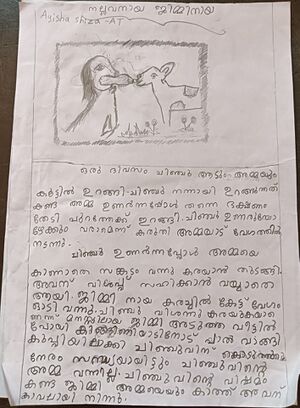 നല്ലവനായ ജിമ്മിനായ
Ayisha shiza -AT
ഒരു ദിവസം ചിഞ്ചു ആടും അമ്മയും
കാട്ടിൽ ഉറങ്ങി. ചിഞ്ചു നന്നായി ഉറങ്ങുന്നത്
കണ്ട അമ്മ ഉണർന്നപ്പോൾ തന്നെ ഭക്ഷണം
തേടി പുറത്തേക്ക് ഇറങ്ങി. ചിഞ്ചു ഉണരുമ്പോ
ഴേക്കും വരാമെന്ന് കരുതി അമ്മയാട് വേഗത്തിൽ
നടന്നു.
ചിഞ്ചു ഉണർന്നപ്പോൾ അമ്മയെ
കാണാതെ സങ്കടം വന്നു കരയാൻ തുടങ്ങി.
അവന് വിശപ്പ് സഹിക്കാൻ വയ്യാതെ
ആയി. ജിമ്മി നായ കരച്ചിൽ കേട്ട് വേഗം
ഓടി വന്നു. ചിഞ്ചു വിശന്നു കരയുകയാ
ണെന്ന് മനസ്സിലായ ജിമ്മി അടുത്ത വീട്ടിൽ
പോയി കുഞ്ഞിണ്ണിമാടിനോട് പാൽ വാങ്ങി
കുപ്പിയിലാക്കി ചിഞ്ചുവിന് കൊടുത്തു.
നേരം സന്ധ്യയായിട്ടും ചിഞ്ചുവിന്റെ
അമ്മ വന്നില്ല. ചിഞ്ചുവിന്റെ വിഷമം
കണ്ട ജിമ്മി അമ്മയെയും കാത്ത് അവന്
കാവലായി നിന്നു.